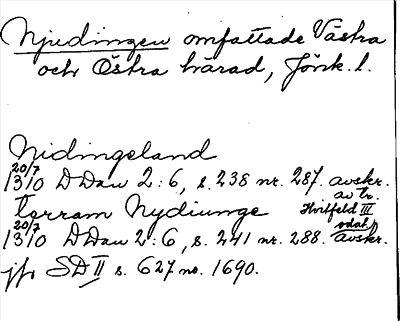 Njudingen omfattade Västra
och Östra härad, Jönk. l.
Nidingeland
20/7
1310 DDan 2:6, s. 238 nr. 287. avskr.
av tr.
terram Nydiunge Hvitfeld III
20/7 odat.
1310 DDan 2:6, s. 241 nr. 288. avskr.
jfr SD II s. 627 no. 1690.